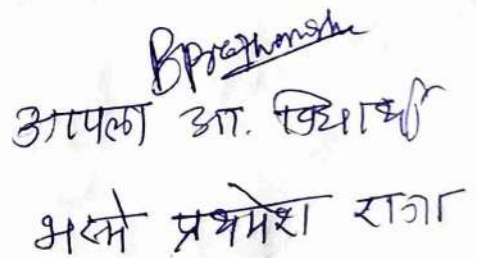 BPrathamesh
आपला आ. विद्यार्थी
भस्मे प्रथमेश राजा